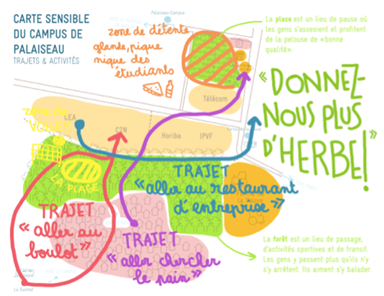 CARTE SENSIBLE
DU CAMPUS DE
PALAISEAU
TRAJETS & ACTIVITÉS
Palaiseau Campus
zone de détente
glande, pique
nique des
étudiants
La place est un lieu de pause où
les gens s'asseoient et profitent
de la pelouse de «bonne
qualité».
«DONNEZ-
NOUS PLUS
D'HERBE!»
Télécom
zone de
LEA
C2N
Horiba
IPVF
LA PLAGE
TRAJET
«aller au restaurant
d'entreprise»
TRAJET
"aller au
boulot"
TRAJET
«aller chercher
le pain»
La forêt est un lieu de passage,
d'activités sportives et de transit.
Les gens y passent plus qu'ils n'y
s'y arrêtent. Ils aiment s'y balader